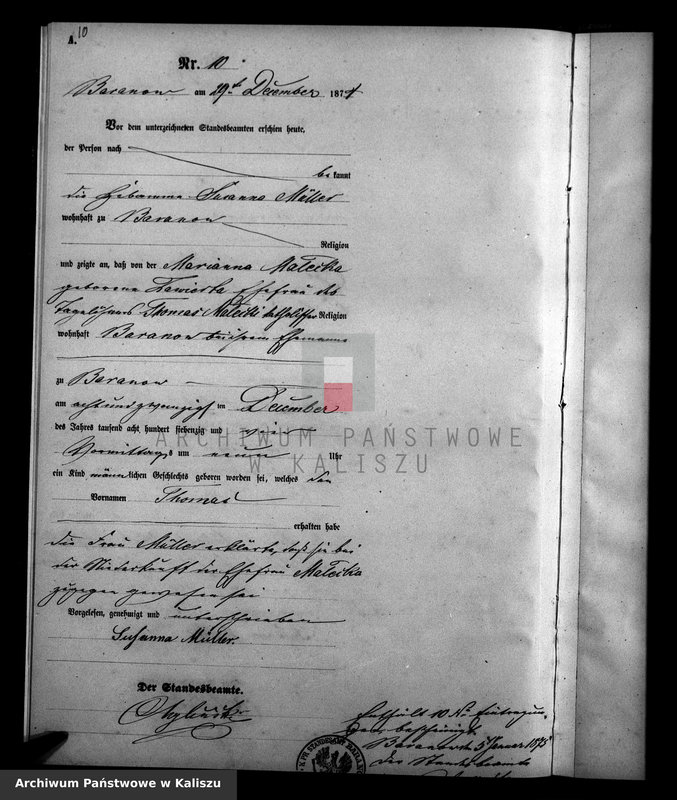 A. 10
Nr. 10
Baranow am 29ten December 1874
Vor dem unterzeichneten Standesbeamten erschien heute,
der Person nach
be kannt
die Hebamme Susanna Müller
wohnhaft zu Baranow
Religion
und zeigte an, daß von der Marianna Malecka
geborene Ehefrau des
Tagelöhners Thomas Malecki katholischer Religion
wohnhaft Baranow bei ihrem Ehemanne
zu Baranow
am acht und zwanzigsten December
des Jahres tausend acht hundert siebenzig und vier
Vormittags um neun Uhr
ein Kind männlichen Geschlechts geboren worden sei, welches den
Vornamen Thomas
erhalten habe
die Frau Müller erklärte, daß sie bei
der Niederkunft der Ehefrau Malecka
zugegen gewesen sei
Vorgelesen, genehmigt und unterschrieben
Susanna Müller.
Der Standesbeamte.
Enthält 10 Eintragun-
gen bescheinigt
Baranow d. 5 Januar 1875
Der Standesbeamte
ARCHIWUM PAŃSTWOWE
W KALISZU
Archiwum Państwowe w Kaliszu